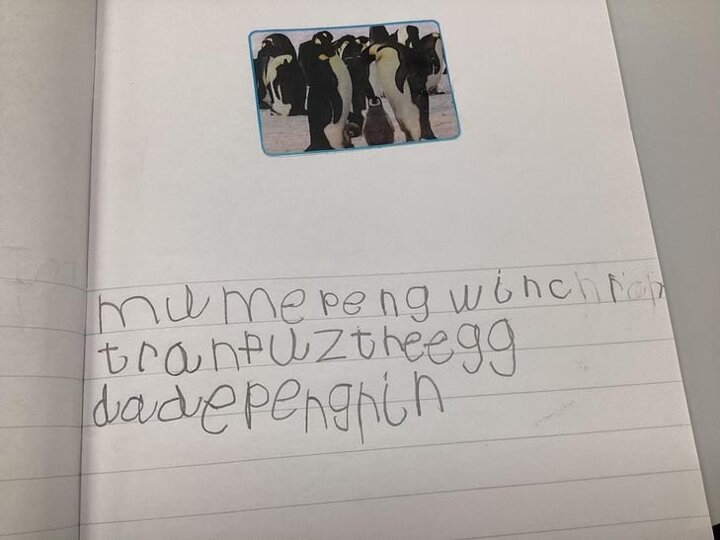 mumepengwin
tranfuztheegg
dadepengnin